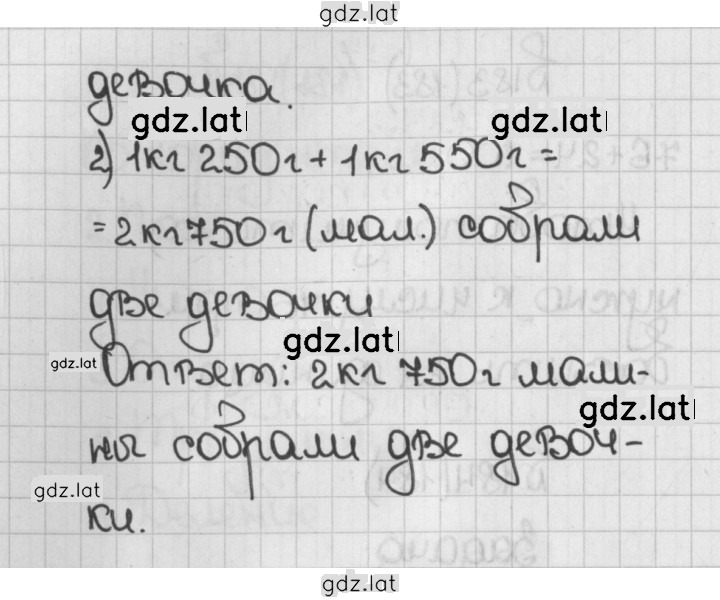 gdz.lat
девочка.
gdz.lat gdz.lat
2) 1кг 250г + 1кг 550г =
= 2кг750г (мал.) собрали
две девочки
gdz.lat
gdz.lat Ответ: 2кг 750г мали-
gdz.lat
ны собрали две девоч-
gdz.lat
ки.
gdz.lat